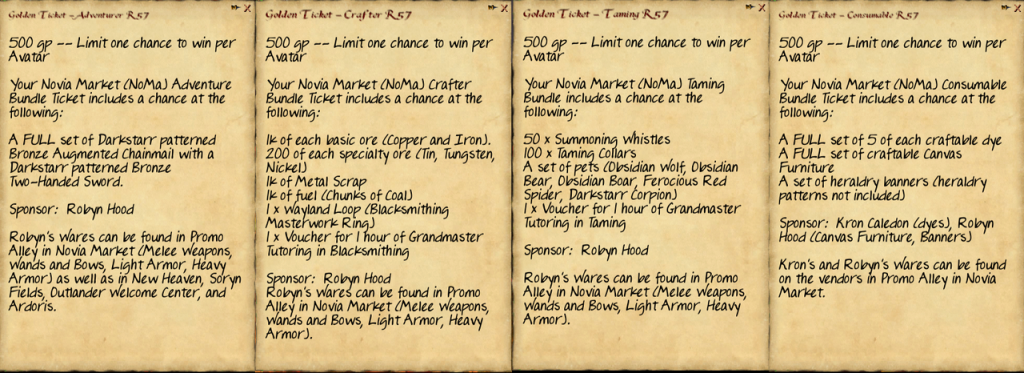 Golden Ticket - Adventurer R57
500 gp -- Limit one chance to win per
Avatar
Your Novia Market (NoMa) Adventure
Bundle Ticket includes a chance at the
following:
A FULL set of Darkstarr patterned
Bronze Augmented Chainmail with a
Darkstarr patterned Bronze
Two-Handed Sword.
Sponsor: Robyn Hood
Robyn's Wares can be found in Promo
Alley in Novia Market (Melee Weapons,
Wands and Bows, Light Armor, Heavy
Armor) as well as in New Heaven, Soryn
Fields, Outlander Welcome Center, and
Ardoris.
Golden Ticket - Crafter R57
500 gp -- Limit one chance to win per
Avatar
Your Novia Market (NoMa) Crafter
Bundle Ticket includes a chance at the
following:
1k of each basic ore (Copper and Iron).
200 of each specialty ore (Tin, Tungsten,
Nickel)
1k of Metal Scrap
1k of fuel (Chunks of Coal)
1 x Wayland Loop (Blacksmithing
Masterwork Ring)
1 x Voucher for 1 hour of Grandmaster
Tutoring in Blacksmithing
Sponsor: Robyn Hood
Robyn's Wares can be found in Promo
Alley in Novia Market (Melee Weapons,
Wands and Bows, Light Armor, Heavy
Armor).
Golden Ticket - Taming R57
500 gp -- Limit one chance to win per
Avatar
Your Novia Market (NoMa) Taming
Bundle Ticket includes a chance at the
following:
50 x Summoning Whistles
100 x Taming Collars
A set of pets (Obsidian Wolf, Obsidian
Bear, Obsidian Boar, Ferocious Red
Spider, Darkstarr Corpion)
1 x Voucher for 1 hour of Grandmaster
Tutoring in Taming
Sponsor: Robyn Hood
Robyn's Wares can be found in Promo
Alley in Novia Market (Melee Weapons,
Wands and Bows, Light Armor, Heavy
Armor).
Golden Ticket - Consumable R57
500 gp -- Limit one chance to win per
Avatar
Your Novia Market (NoMa) Consumable
Bundle Ticket includes a chance at the
following:
A FULL set of 5 of each craftable dye
A FULL set of craftable Canvas
Furniture
A set of heraldry banners (heraldry
patterns not included)
Sponsor: Kron Caledon (dyes), Robyn
Hood (Canvas Furniture, Banners)
Kron's and Robyn's Wares can be found
on the vendors in Promo Alley in Novia
Market.